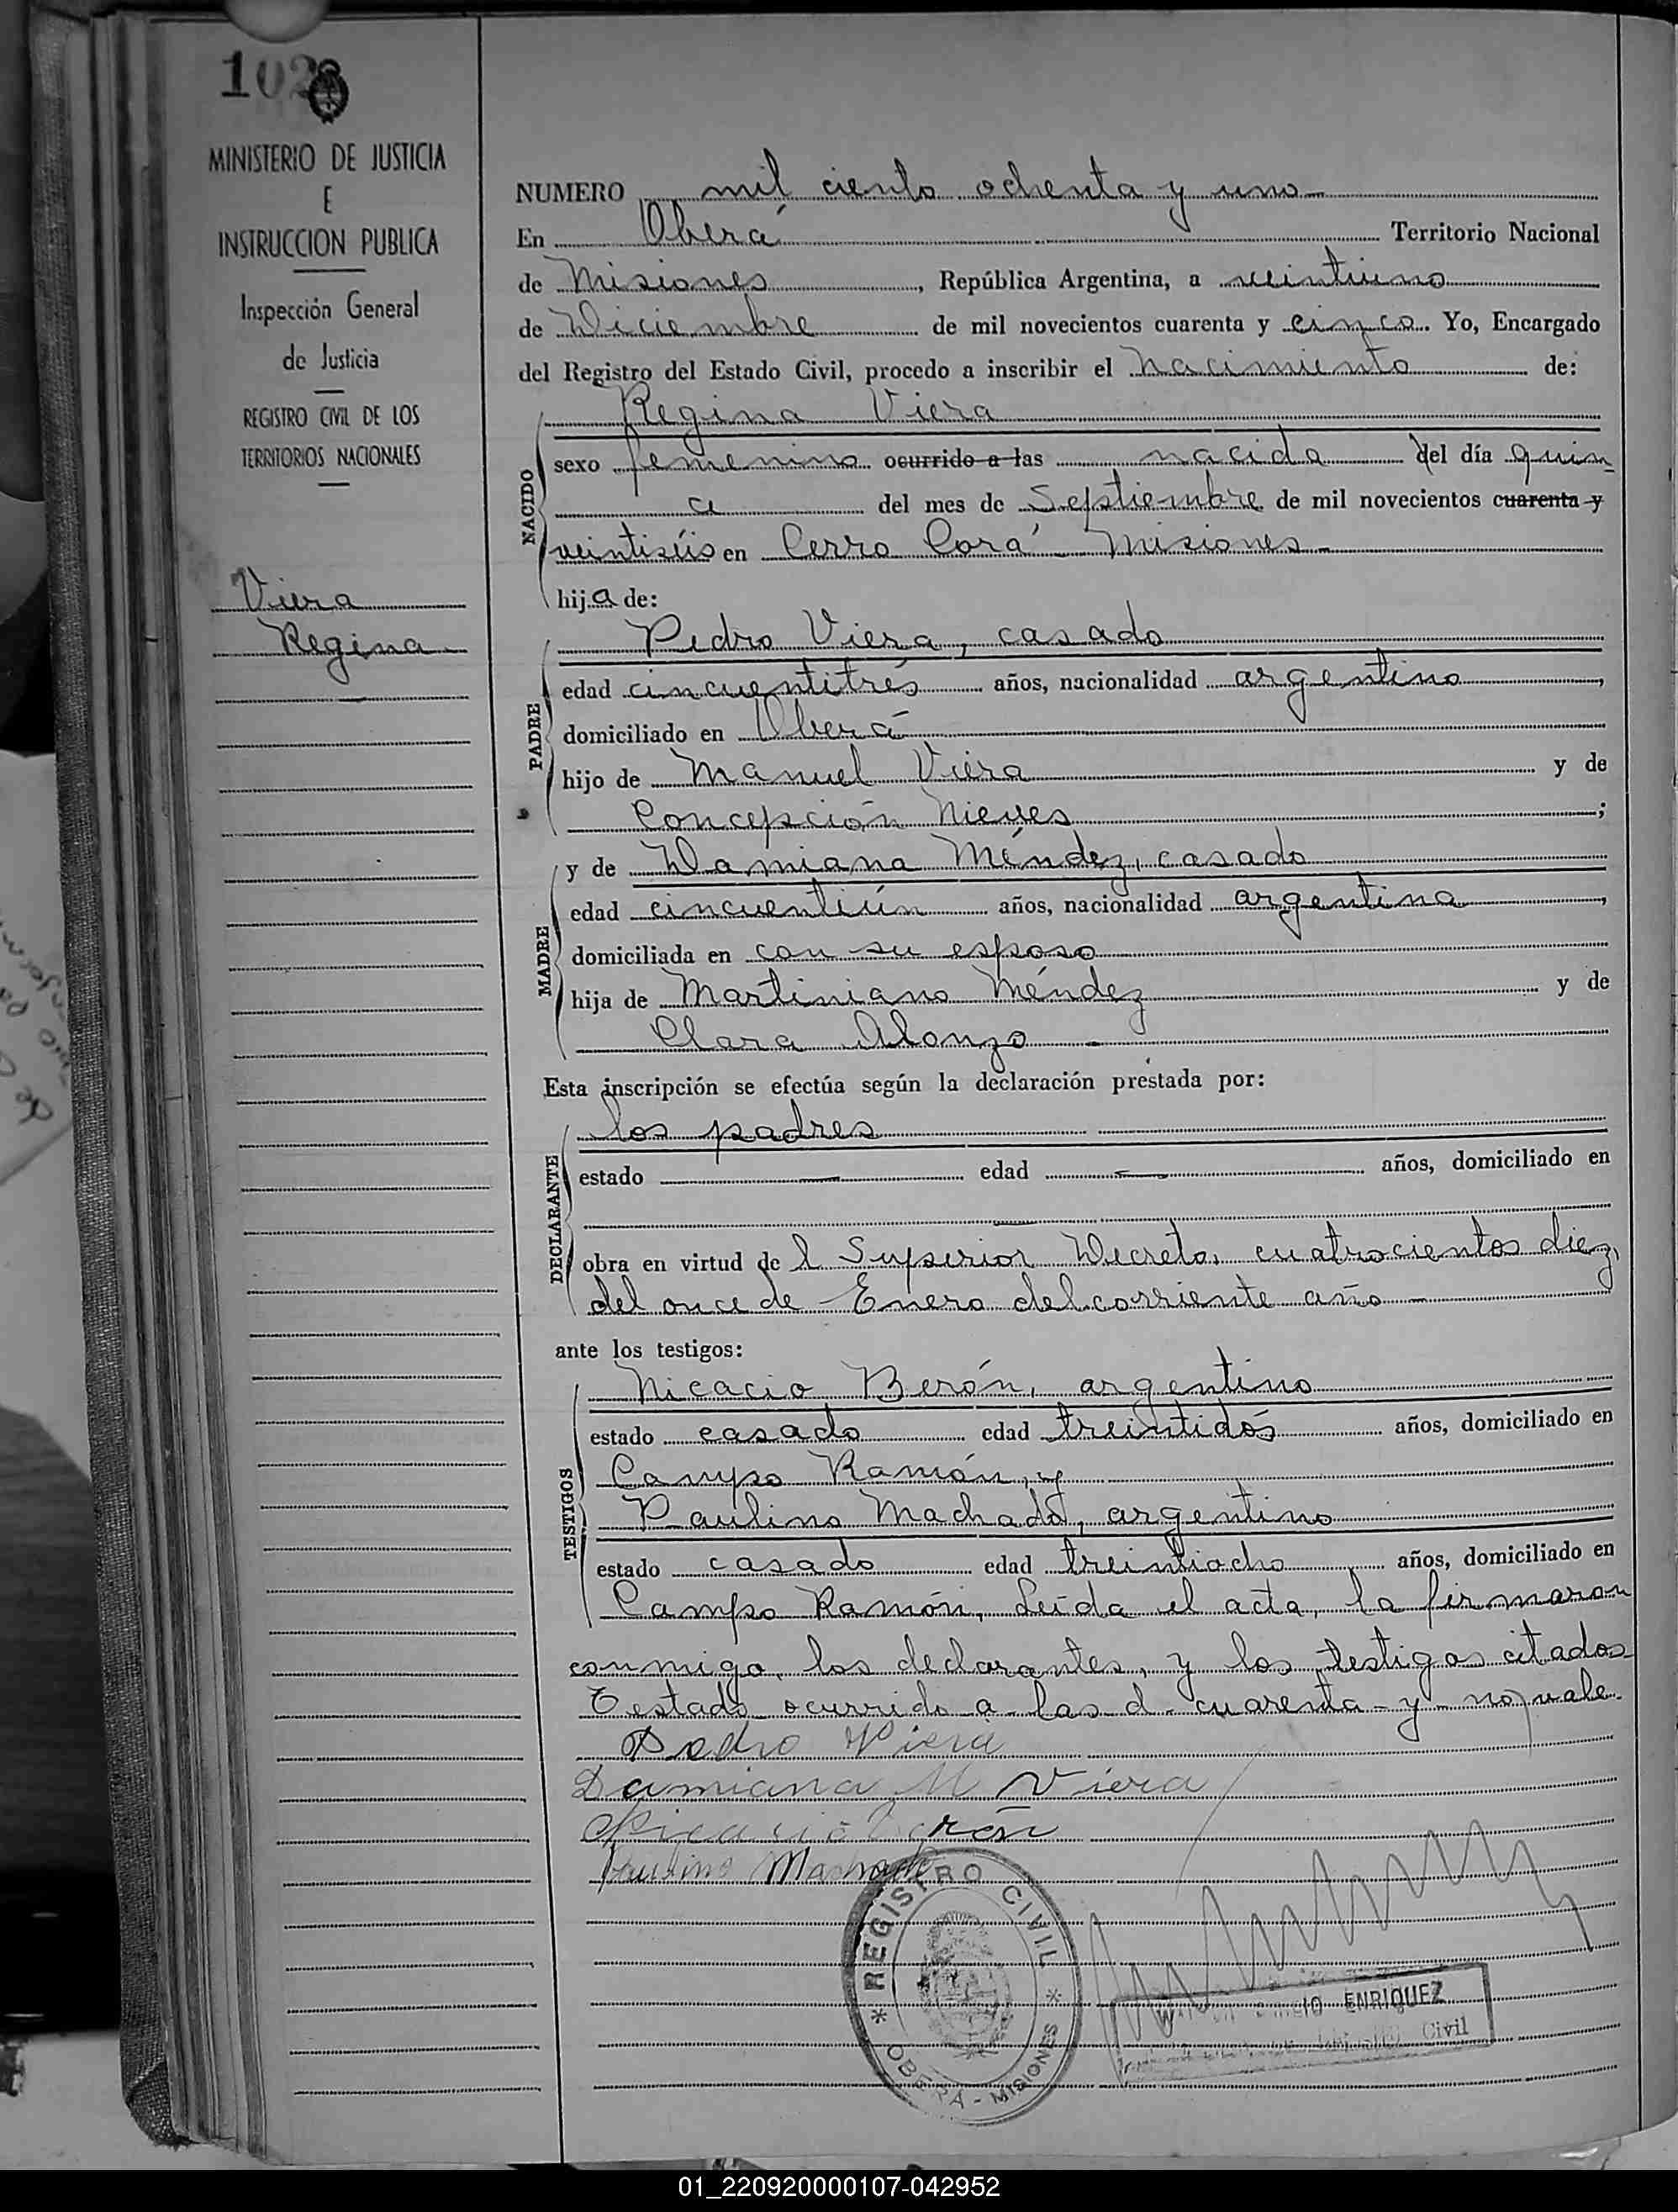 102
MINISTERIO DE JUSTICIA
E
INSTRUCCION PUBLICA
Inspección General
de Justicia
REGISTRO CIVIL DE LOS
TERRITORIOS NACIONALES
Viera
Regina
NUMERO mil ciento ochenta y uno
En Oberá Territorio Nacional
de Misiones, República Argentina, a veintiuno
de Diciembre de mil novecientos cuarenta y cinco. Yo, Encargado
del Registro del Estado Civil, procedo a inscribir el nacimiento de:
Regina Viera
NACIDO
sexo femenino ocurrido a las nacida del día quin
ce del mes de Septiembre de mil novecientos cuarenta y
veintiséis en Cerro Corá Misiones
hija de:
Pedro Viera, casado
PADRE
edad cincuentitrés años, nacionalidad argentino,
domiciliado en Oberá
hijo de Manuel Viera y de
Concepción Nieves;
y de Damiana Méndez, casado
MADRE
edad cincuentiún años, nacionalidad argentina,
domiciliada en con su esposo
hija de Martiniano Méndez y de
Clara Alonzo
Esta inscripción se efectúa según la declaración prestada por:
los padres
DECLARANTE
estado edad años, domiciliado en
obra en virtud del Superior Decreto, cuatrocientos diez,
del once de Enero del corriente año
ante los testigos:
Nicacio Berón, argentino
TESTIGOS
estado casado edad treintidós años, domiciliado en
Campo Ramón, y
Paulino Machado, argentino
estado casado edad treintiocho años, domiciliado en
Campo Ramón, Leída el acta, la firmaron
conmigo, los declarantes, y los testigos citados
Testado ocurrido a las d. cuarenta-y-no vale.
Pedro Viera
Damiana M Viera
Nicacio Berón
Paulino Machado
REGISTRO CIVIL
OBERA - MISIONES
ENRIQUEZ
Civil
01_220920000107-042952